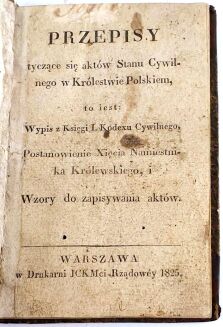 PRZEPISY
tyczące się aktów Stanu Cywil-
nego w Królestwie Polskiem,
to iest:
Wypis z Księgi I. Kodexu Cywilnego,
Postanowienie Xięcia Namiestni-
ka Królewskiego, i
Wzory do zapisywania aktów.
WARSZAWA
w Drukarni JCKMci Rządowéy 1825.